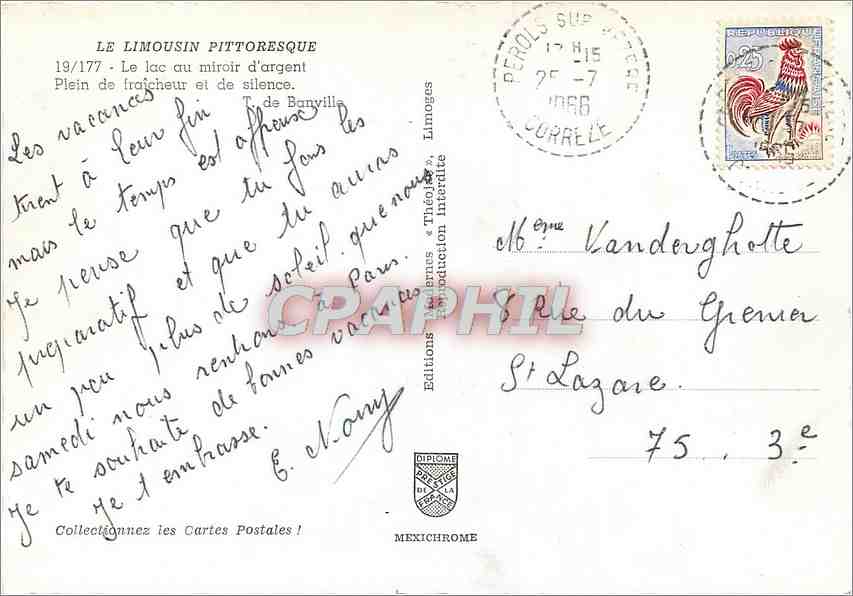 LE LIMOUSIN PITTORESQUE
19/177 - Le lac au miroir d'argent
Plein de fraîcheur et de silence.
T. de Banville
Les vacances
tirent à leur fin
mais le temps est affreux
Je pense que tu fais les
préparatif et que tu auras
un peu plus de soleil que nous
samedi nous rentrons à Paris.
Je te souhaite de bonnes vacances
Je t'embrasse.
E. Nony
Collectionnez les Cartes Postales !
Editions Modernes « Théojac », Limoges
Reproduction Interdite
DIPLOME
PRESTIGE
DE LA
FRANCE
MEXICHROME
PEROLS SUR VEZERE
12 H 15
25 -7
1966
CORREZE
REPUBLIQUE FRANÇAISE
0,25
POSTES
Mme Vanderghotte
8 Rue du Grenier
St Lazare.
75 .. 3e
CPAPHIL